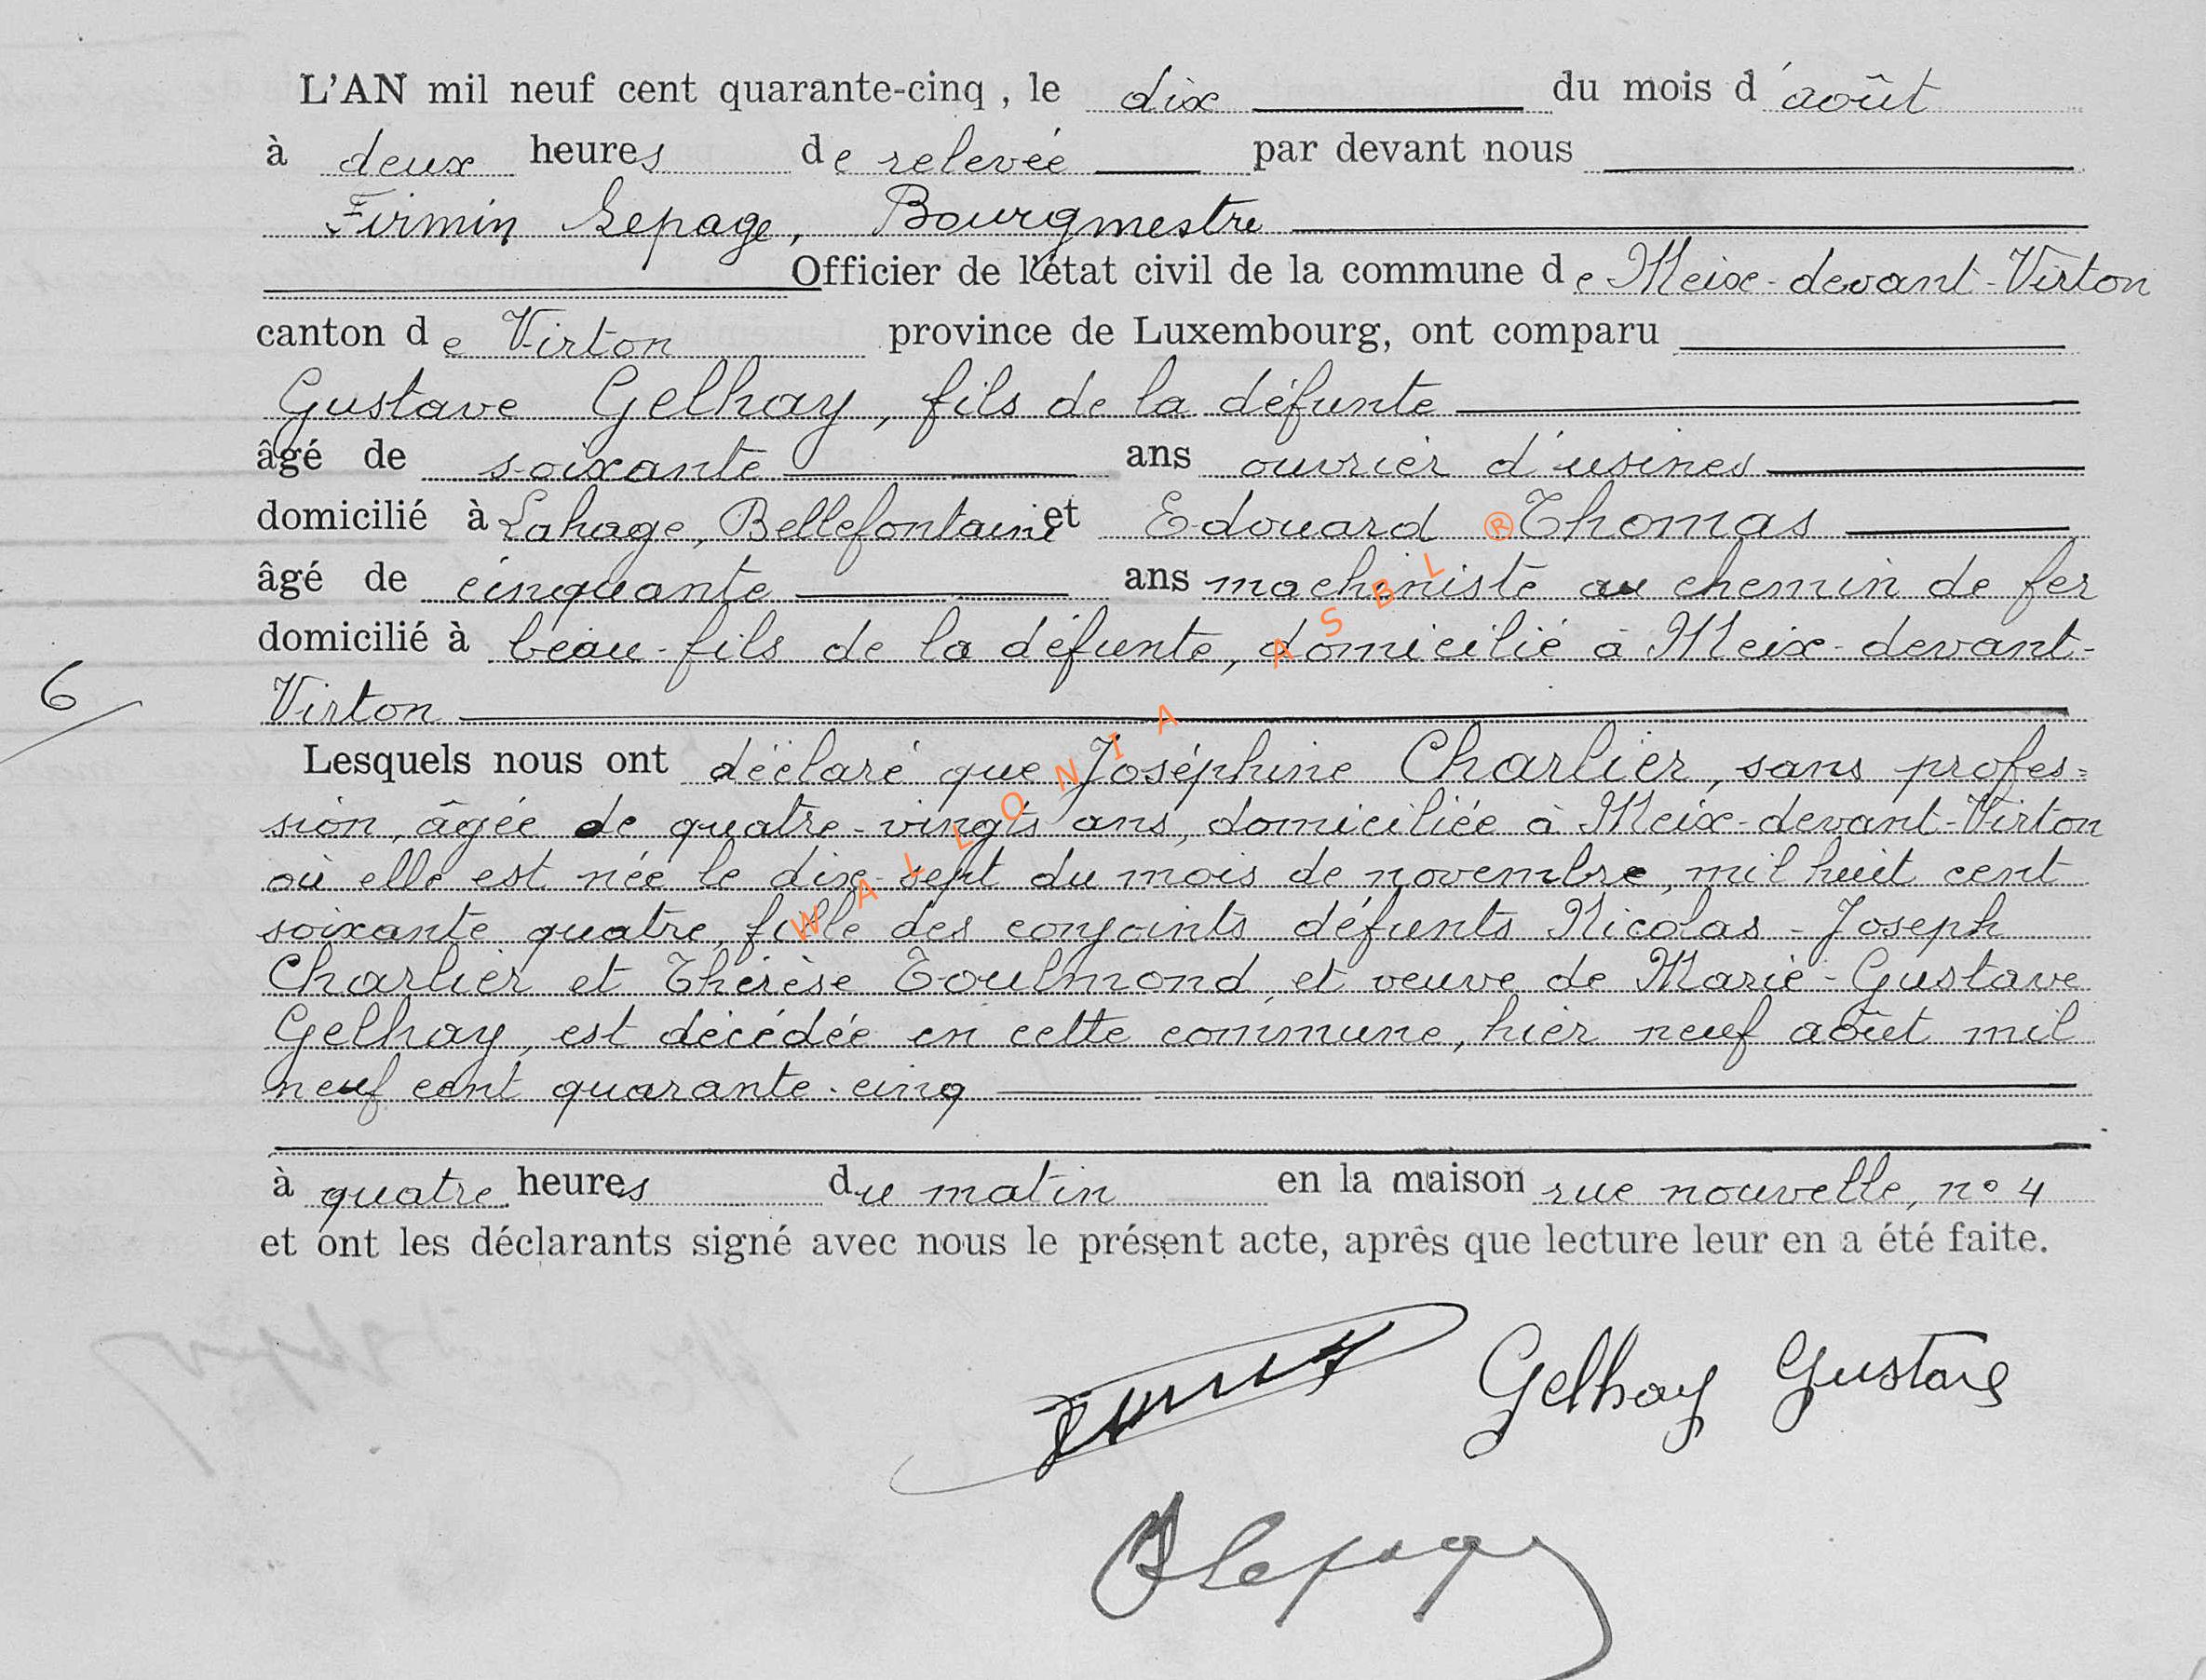 L'AN mil neuf cent quarante-cinq, le dix du mois d'août
à deux heures de relevée par devant nous
Firmin Lepage, Bourgmestre
Officier de l'état civil de la commune de Meix-devant-Virton
canton de Virton province de Luxembourg, ont comparu
Gustave Gelhay, fils de la défunte
âgé de soixante ans ouvrier d'usines
domicilié à Lahage, Bellefontaine et Edouard Thomas
âgé de cinquante ans machiniste au chemin de fer
domicilié à beau-fils de la défunte, domicilié à Meix-devant-
6
Virton
Lesquels nous ont déclaré que Joséphine Charlier, sans profes=
sion, âgée de quatre-vingts ans, domiciliée à Meix-devant-Virton
où elle est née le dix-sept du mois de novembre, mil huit cent
soixante quatre, fille des conjoints défunts Nicolas-Joseph
Charlier et Thérèse Toulmond, et veuve de Marie-Gustave
Gelhay, est décédée en cette commune, hier neuf août mil
neuf cent quarante-cinq
à quatre heures du matin en la maison rue nouvelle, n° 4
et ont les déclarants signé avec nous le présent acte, après que lecture leur en a été faite.
Gelhay Gustave
Lepage
WALLONIA ASBL ®